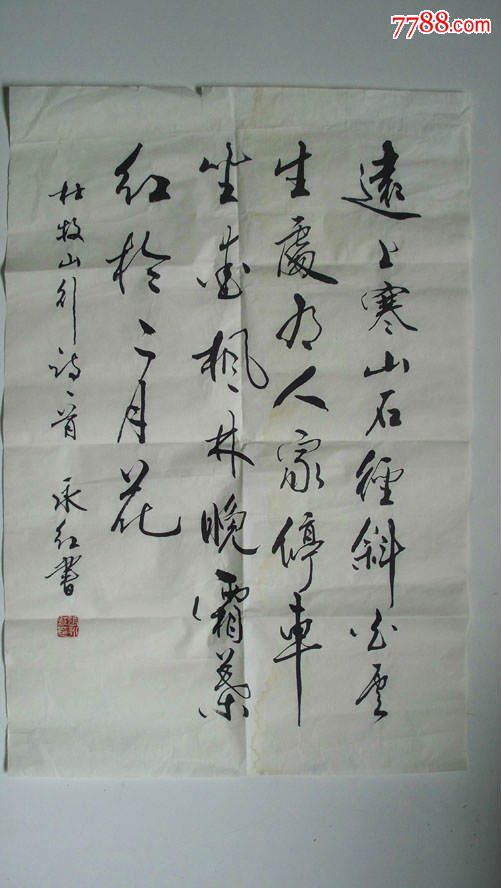 遠上寒山石徑斜白雲
生處有人家停車
坐愛楓林晚霜葉
紅於二月花
杜牧山行詩一首 承紅書
7788.com